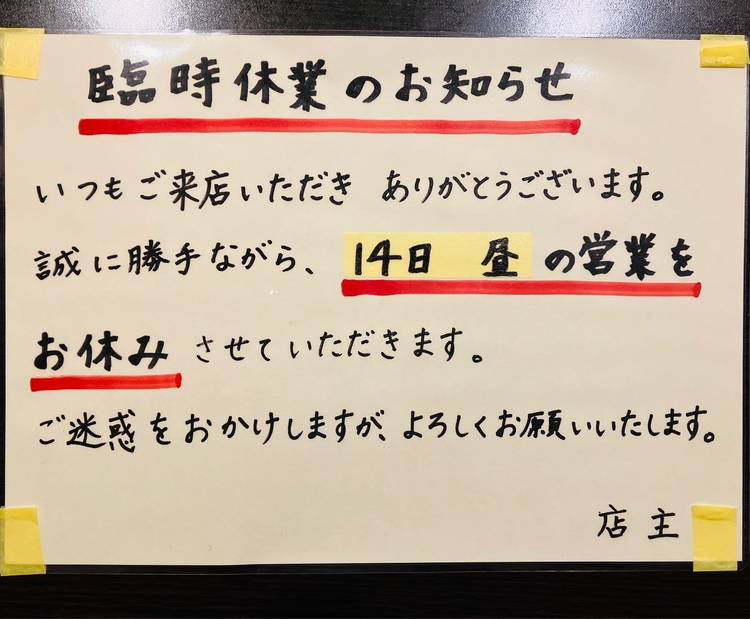 臨時休業のお知らせ
いつもご来店いただき ありがとうございます。
誠に勝手ながら、14日 昼の営業を
お休みさせていただきます。
ご迷惑をおかけしますが、よろしくお願いいたします。
店主